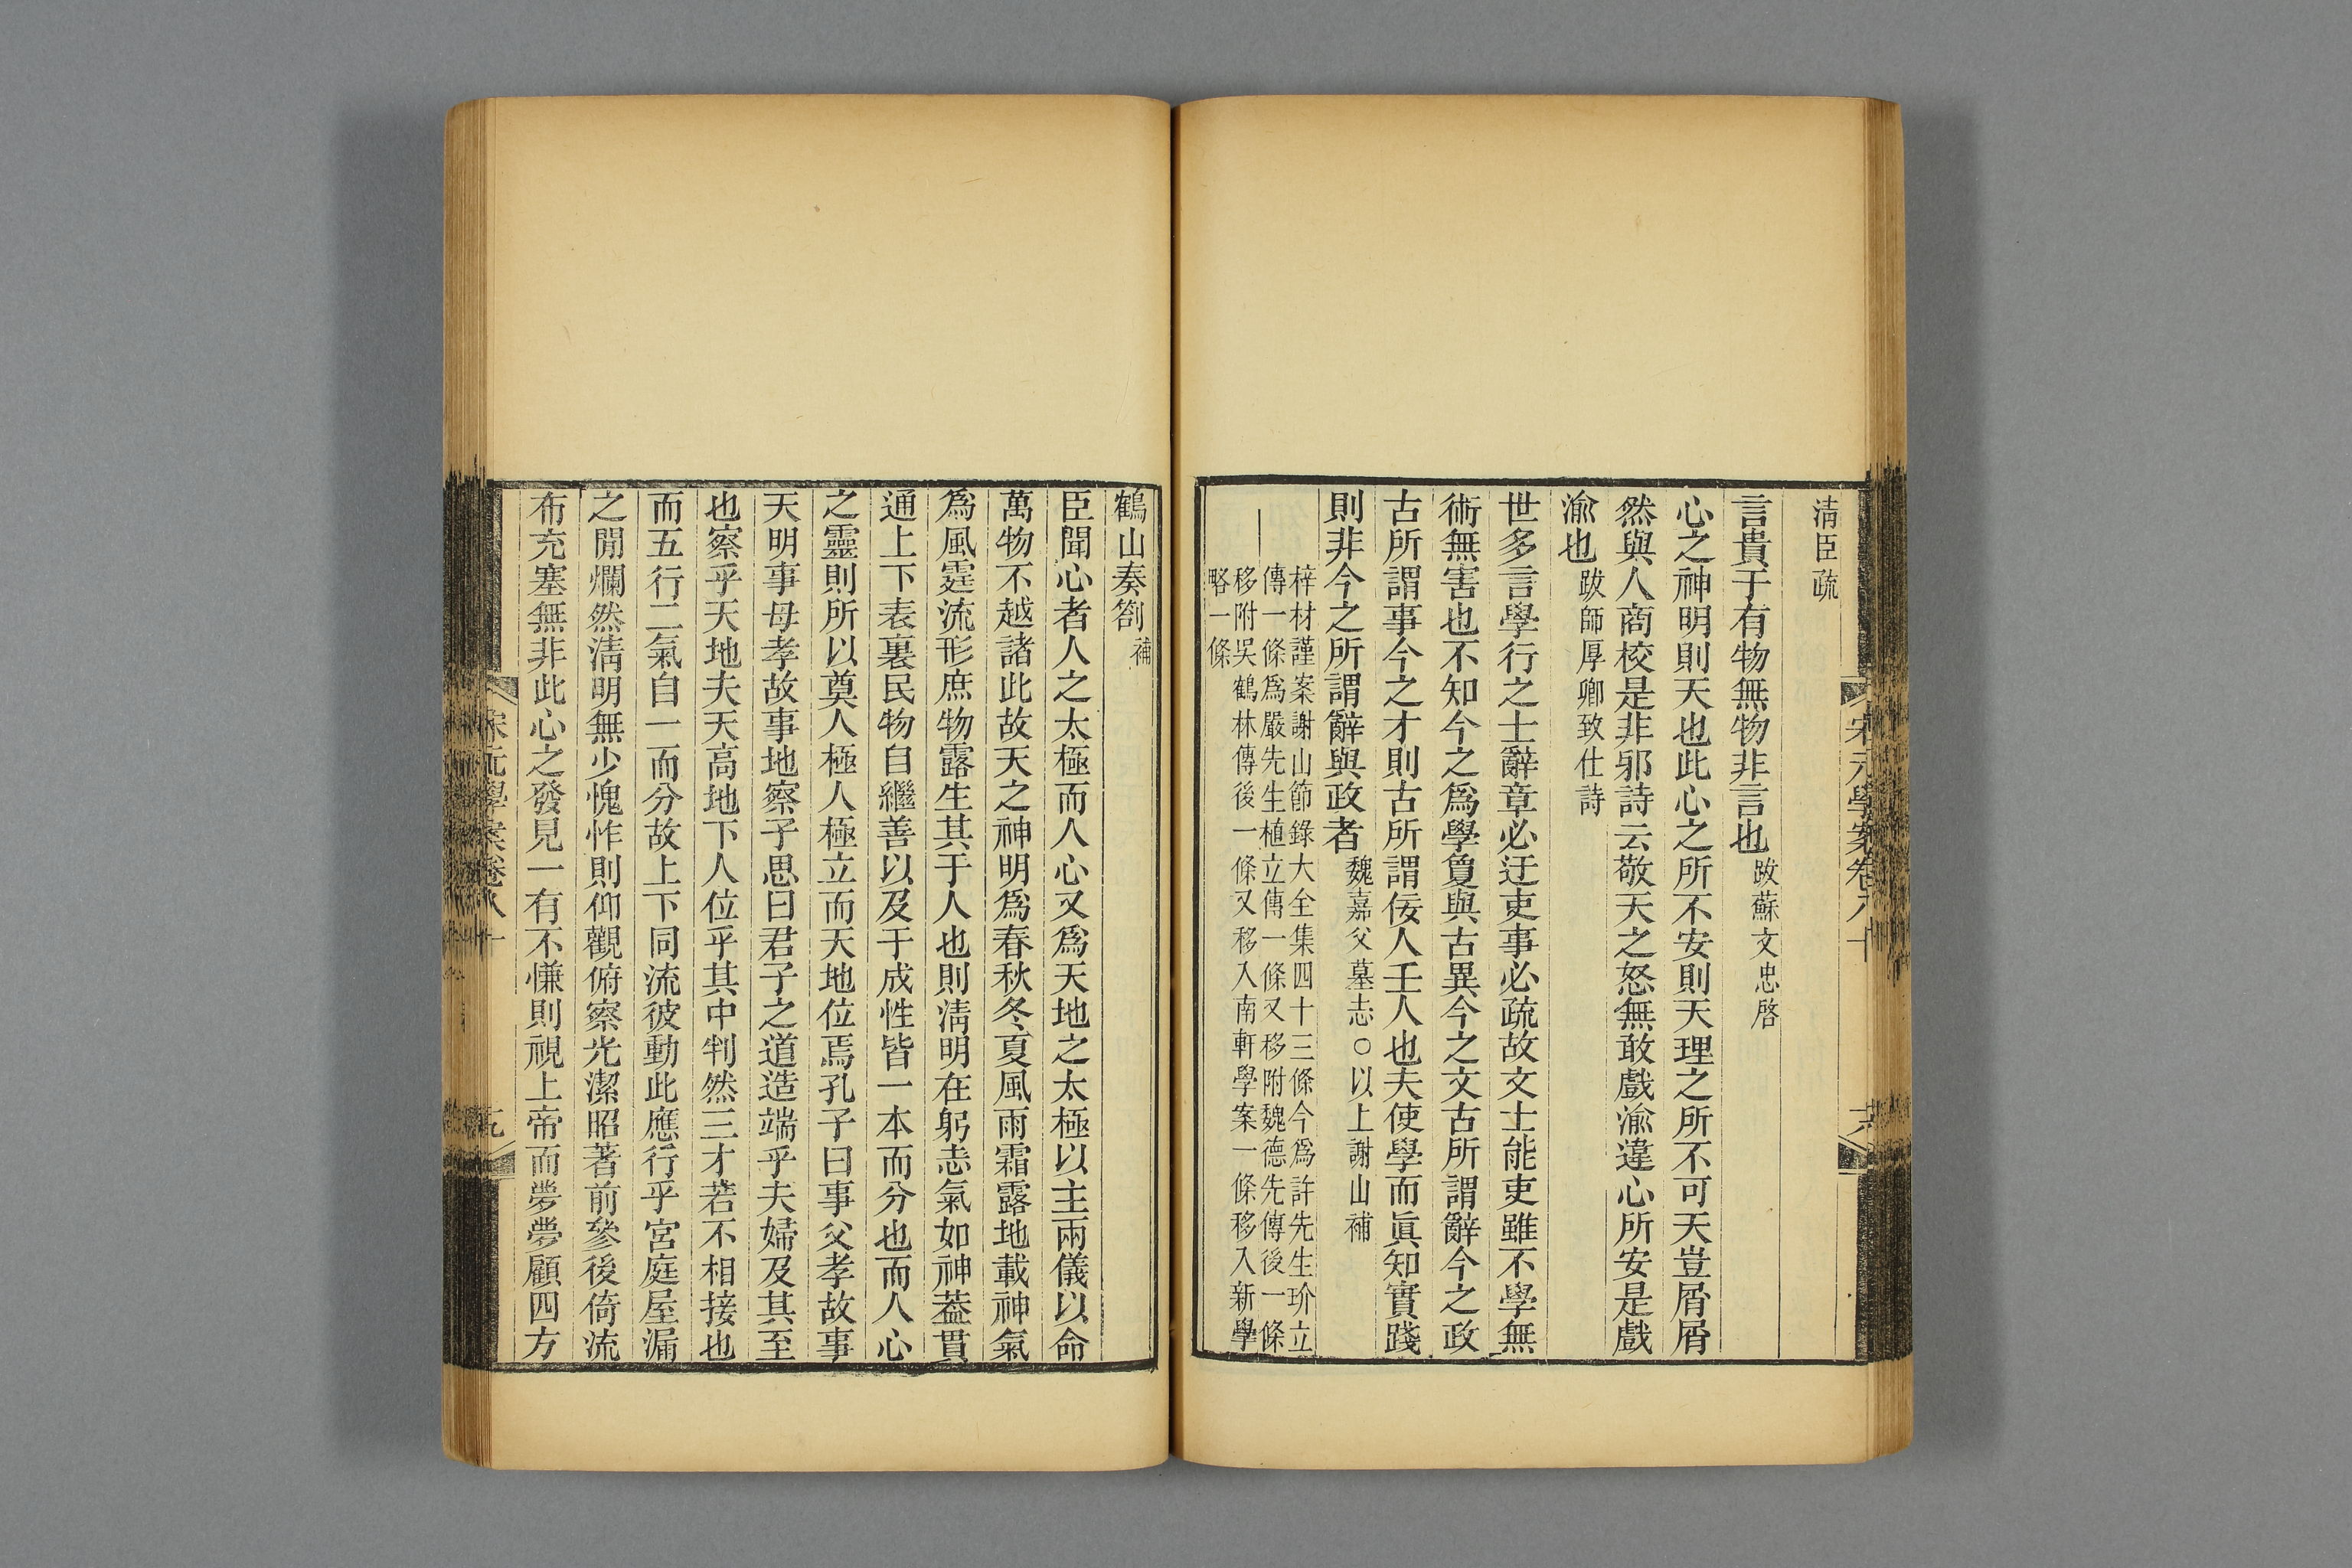 清臣疏
言貴于有物無物非言也跋蘇文忠啓
心之神明則天也此心之所不安則天理之所不可天豈屑屑
然與人商校是非邪詩云敬天之怒無敢戲渝違心所安是戲
渝也跋師厚卿致仕詩
世多言學行之士辭章必迂吏事必疏故文士能吏雖不學無
術無害也不知今之爲學敻與古異今之文古所謂辭今之政
古所謂事今之才則古所謂佞人壬人也夫使學而眞知實踐
則非今之所謂辭與政者魏嘉父墓志○以上謝山補
梓材謹案謝山節錄大全集四十三條今爲許先生玠立
傳一條爲嚴先生植立傳一條又移附魏德先傳後一條
移附吳鶴林傳後一條又移入南軒學案一條移入新學
略一條
宋元學案卷八十
鶴山奏劄補
臣聞心者人之太極而人心又爲天地之太極以主兩儀以命
萬物不越諸此故天之神明爲春秋冬夏風雨霜露地載神氣
爲風霆流形庶物露生其于人也則清明在躬志氣如神葢貫
通上下表裏民物自繼善以及于成性皆一本而分也而人心
之靈則所以奠人極人極立而天地位焉孔子曰事父孝故事
天明事母孝故事地察子思曰君子之道造端乎夫婦及其至
也察乎天地夫天高地下人位乎其中判然三才若不相接也
而五行二氣自一而分故上下同流彼動此應行乎宮庭屋漏
之閒爛然清明無少愧怍則仰觀俯察光潔昭著前參後倚流
布充塞無非此心之發見一有不慊則視上帝而夢夢顧四方
宋元學案卷八十